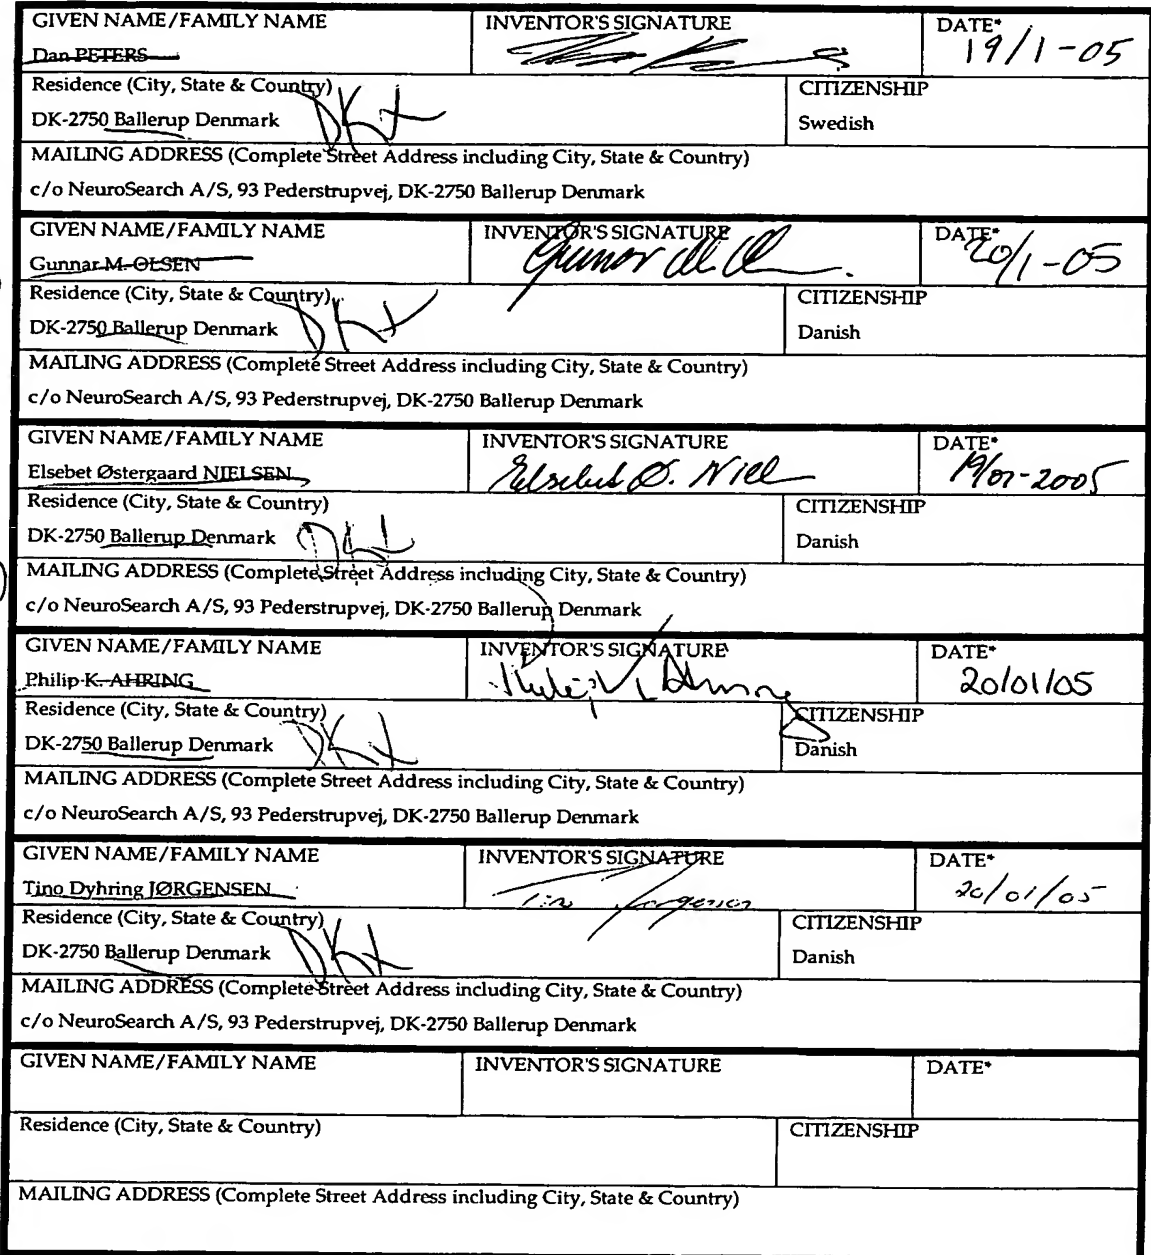 GIVEN NAME/FAMILY NAME INVENTOR'S SIGNATURE DATE*
Dan PETERS 19/1-05
Residence (City, State & Country) CITIZENSHIP
DK-2750 Ballerup Denmark DKX Swedish
MAILING ADDRESS (Complete Street Address including City, State & Country)
c/o NeuroSearch A/S, 93 Pederstrupvej, DK-2750 Ballerup Denmark
GIVEN NAME/FAMILY NAME INVENTOR'S SIGNATURE DATE*
Gunnar M. OLSEN 20/1-05
Residence (City, State & Country) CITIZENSHIP
DK-2750 Ballerup Denmark DKX Danish
MAILING ADDRESS (Complete Street Address including City, State & Country)
c/o NeuroSearch A/S, 93 Pederstrupvej, DK-2750 Ballerup Denmark
GIVEN NAME/FAMILY NAME INVENTOR'S SIGNATURE DATE*
Elsebet Østergaard NIELSEN 19/01-2005
Residence (City, State & Country) CITIZENSHIP
DK-2750 Ballerup Denmark DKX Danish
MAILING ADDRESS (Complete Street Address including City, State & Country)
c/o NeuroSearch A/S, 93 Pederstrupvej, DK-2750 Ballerup Denmark
GIVEN NAME/FAMILY NAME INVENTOR'S SIGNATURE DATE*
Philip K. AHRING 20/01/05
Residence (City, State & Country) CITIZENSHIP
DK-2750 Ballerup Denmark DKX Danish
MAILING ADDRESS (Complete Street Address including City, State & Country)
c/o NeuroSearch A/S, 93 Pederstrupvej, DK-2750 Ballerup Denmark
GIVEN NAME/FAMILY NAME INVENTOR'S SIGNATURE DATE*
Tino Dyhring JØRGENSEN 20/01/05
Residence (City, State & Country) CITIZENSHIP
DK-2750 Ballerup Denmark DKX Danish
MAILING ADDRESS (Complete Street Address including City, State & Country)
c/o NeuroSearch A/S, 93 Pederstrupvej, DK-2750 Ballerup Denmark
GIVEN NAME/FAMILY NAME INVENTOR'S SIGNATURE DATE*
Residence (City, State & Country) CITIZENSHIP
MAILING ADDRESS (Complete Street Address including City, State & Country)